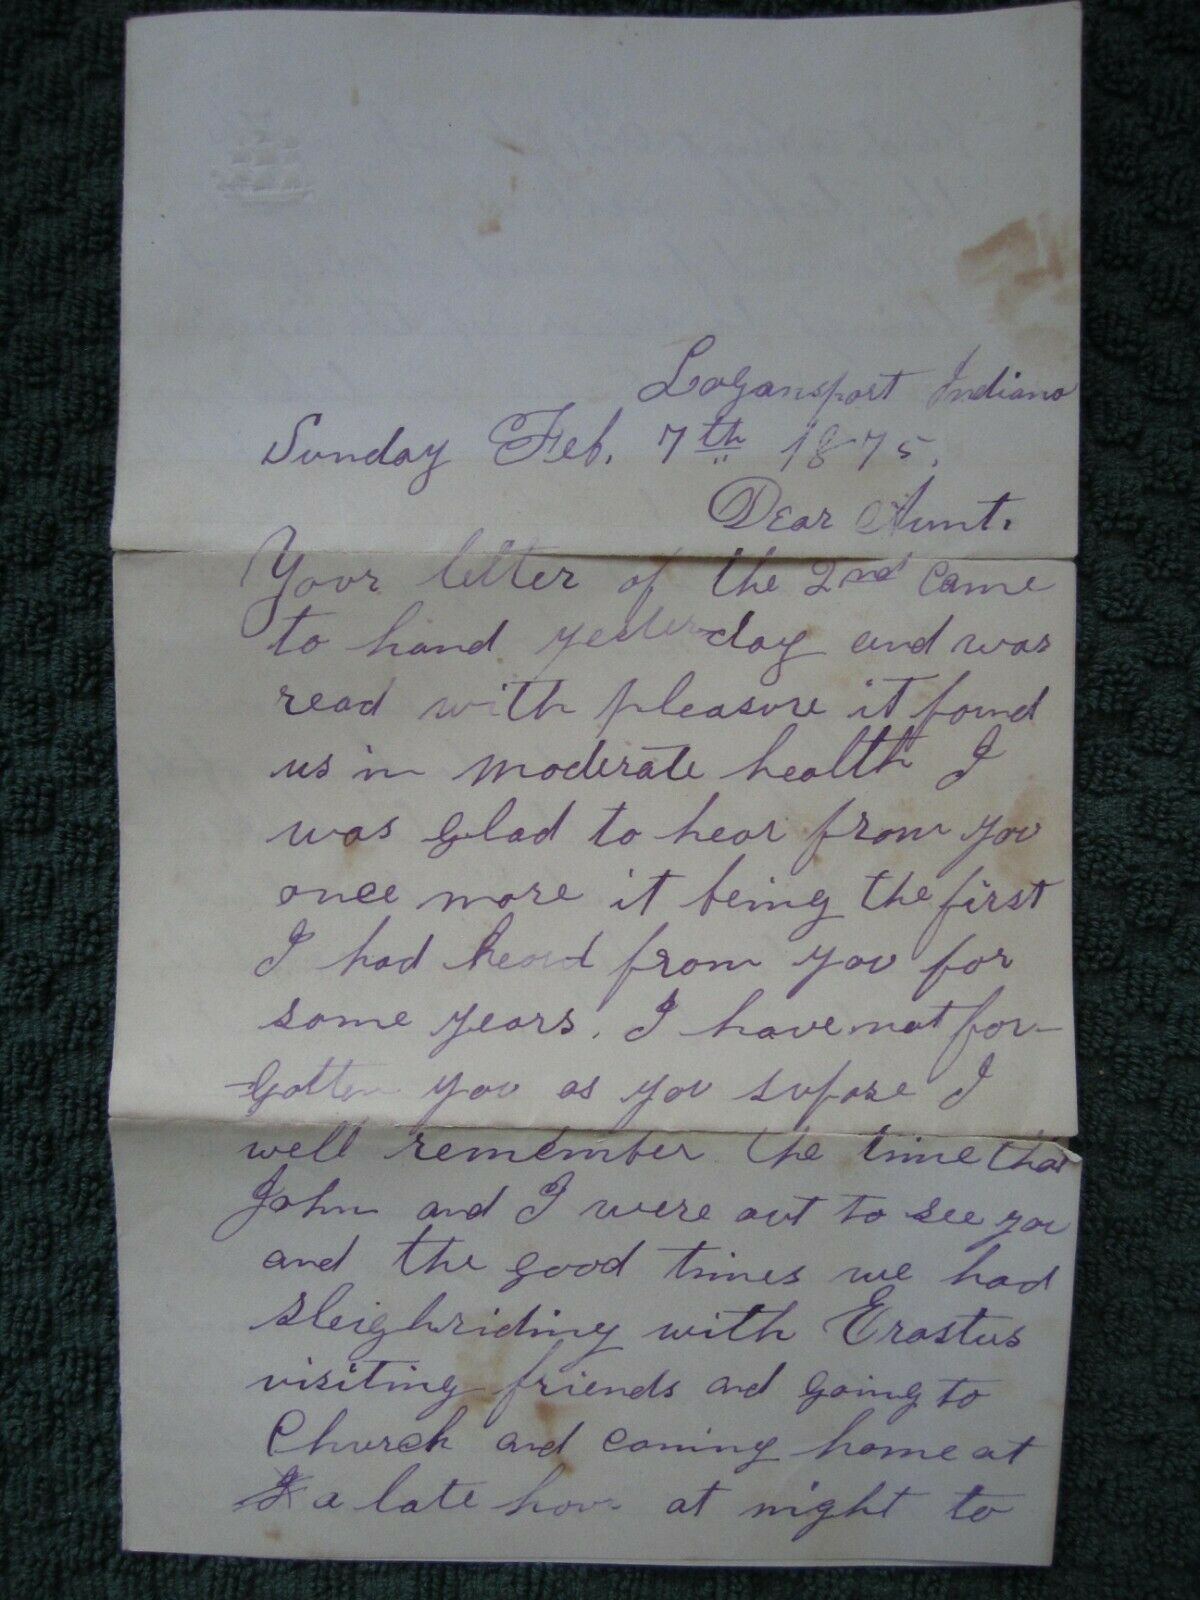 Logansport Indiana
Sunday Feb. 7th 1875.
Dear Aunt.
Your letter of the 2nd came
to hand yesterday and was
read with pleasure it found
us in moderate health I
was glad to hear from you
once more it being the first
I had heard from you for
some years. I have not for-
gotten you as you supose I
well remember the time that
John and I were out to see you
and the good times we had
sleighriding with Erastus
visiting friends and going to
Church and coming home at
a late hour at night to